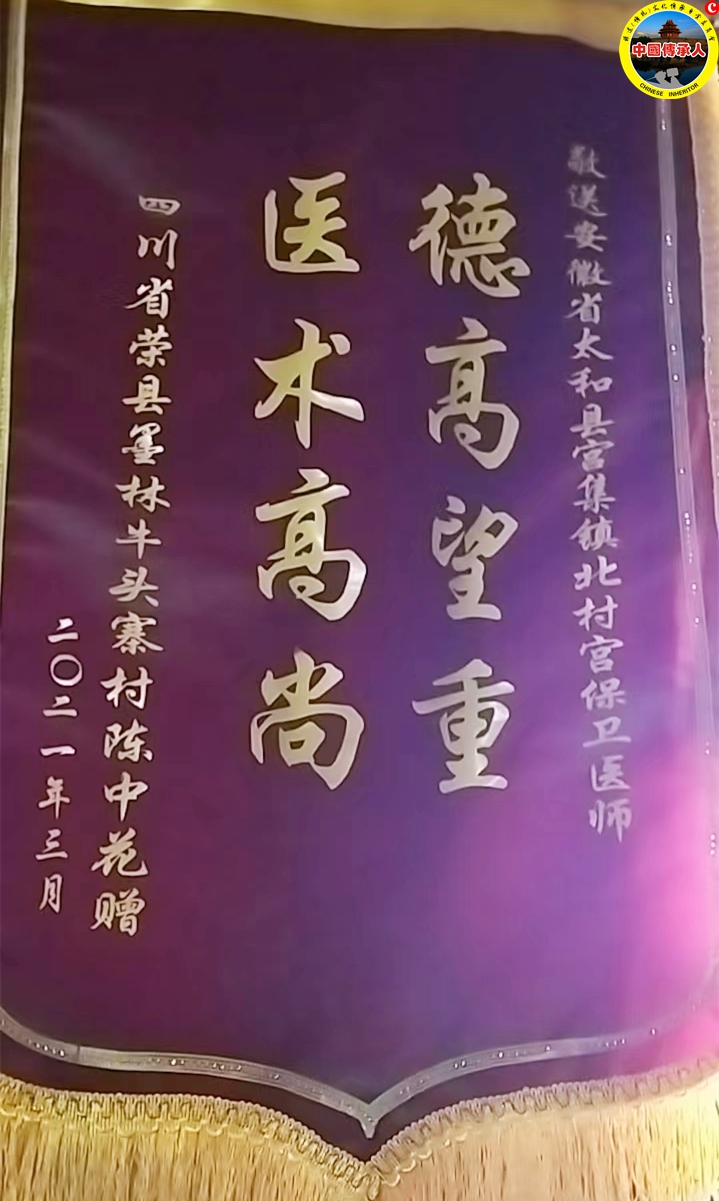 敬送安徽省太和县宫集镇北村宫保卫医师
德高望重
医术高尚
四川省荣县墨林牛头寨村陈中花赠
二〇二一年三月
中國傳承人
CHINESE INHERITOR
C